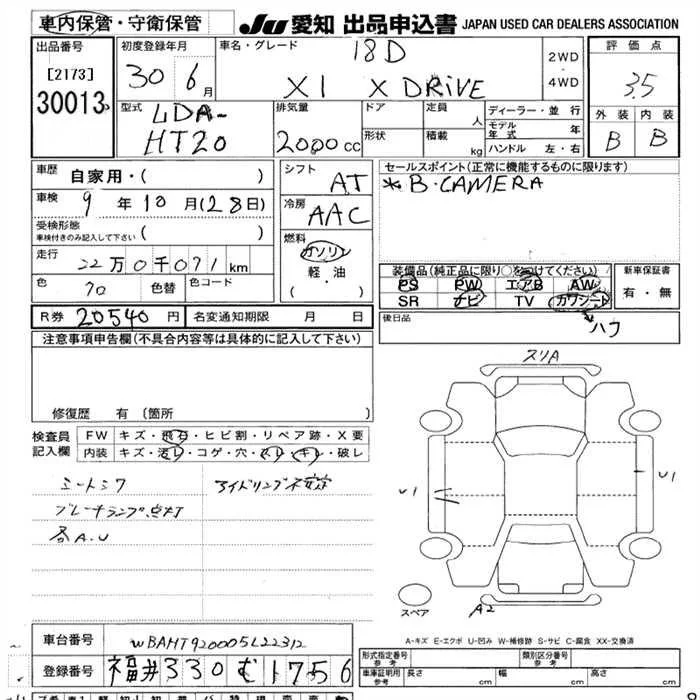 車内保管・守衛保管
JU 愛知 出品申込書 JAPAN USED CAR DEALERS ASSOCIATION
出品番号
[2173]
30013
初度登録年月
30 6月
車名・グレード
18D
X1 X DRiVE
2WD
・
4WD
評価点
3.5
外装 内装
B B
型式
LDA-
HT20
排気量
2000cc
ドア
形状
定員 人
積載 kg
ディーラー・並行
モデル年式 年
ハンドル 左・右
車歴 自家用・( )
車検 9年10月(28日)
受検形態
車検付きのみ記入して下さい ( )
走行 22万0千071km
色 色替 色コード
シフト
AT
冷房
AAC
燃料
ガソリン
軽・油
( ・ )
セールスポイント(正常に機能するものに限ります)
*B・CAMERA
装備品(純正品に限り○をつけてください)
PS PW エアB AW
SR ナビ TV カワシート
ハフ
新車保証書
有・無
後日品
R券 20540円 名変通知期限 月 日
注意事項申告欄(不具合内容等は具体的に記入して下さい)
修復歴 有 (箇所
検査員
記入欄
FW キズ・飛石・ヒビ割・リペア跡・X要
内装 キズ・汚レ・コゲ・穴・スレ・キレ・破レ
シートシワ アイドリング不安定
ブレーキランプ点灯
各A.U
スリA
U1
U1
A2
スペア
A-キズ E-エクボ U-凹み W-補修跡 S-サビ C-腐食 XX-交換済
車台番号 WBAHT920005L22312
登録番号 福井330む1756
形式指定番号
参考
類別区分番号
参考
車庫証明用
参考
長さ cm
幅 cm
高さ cm